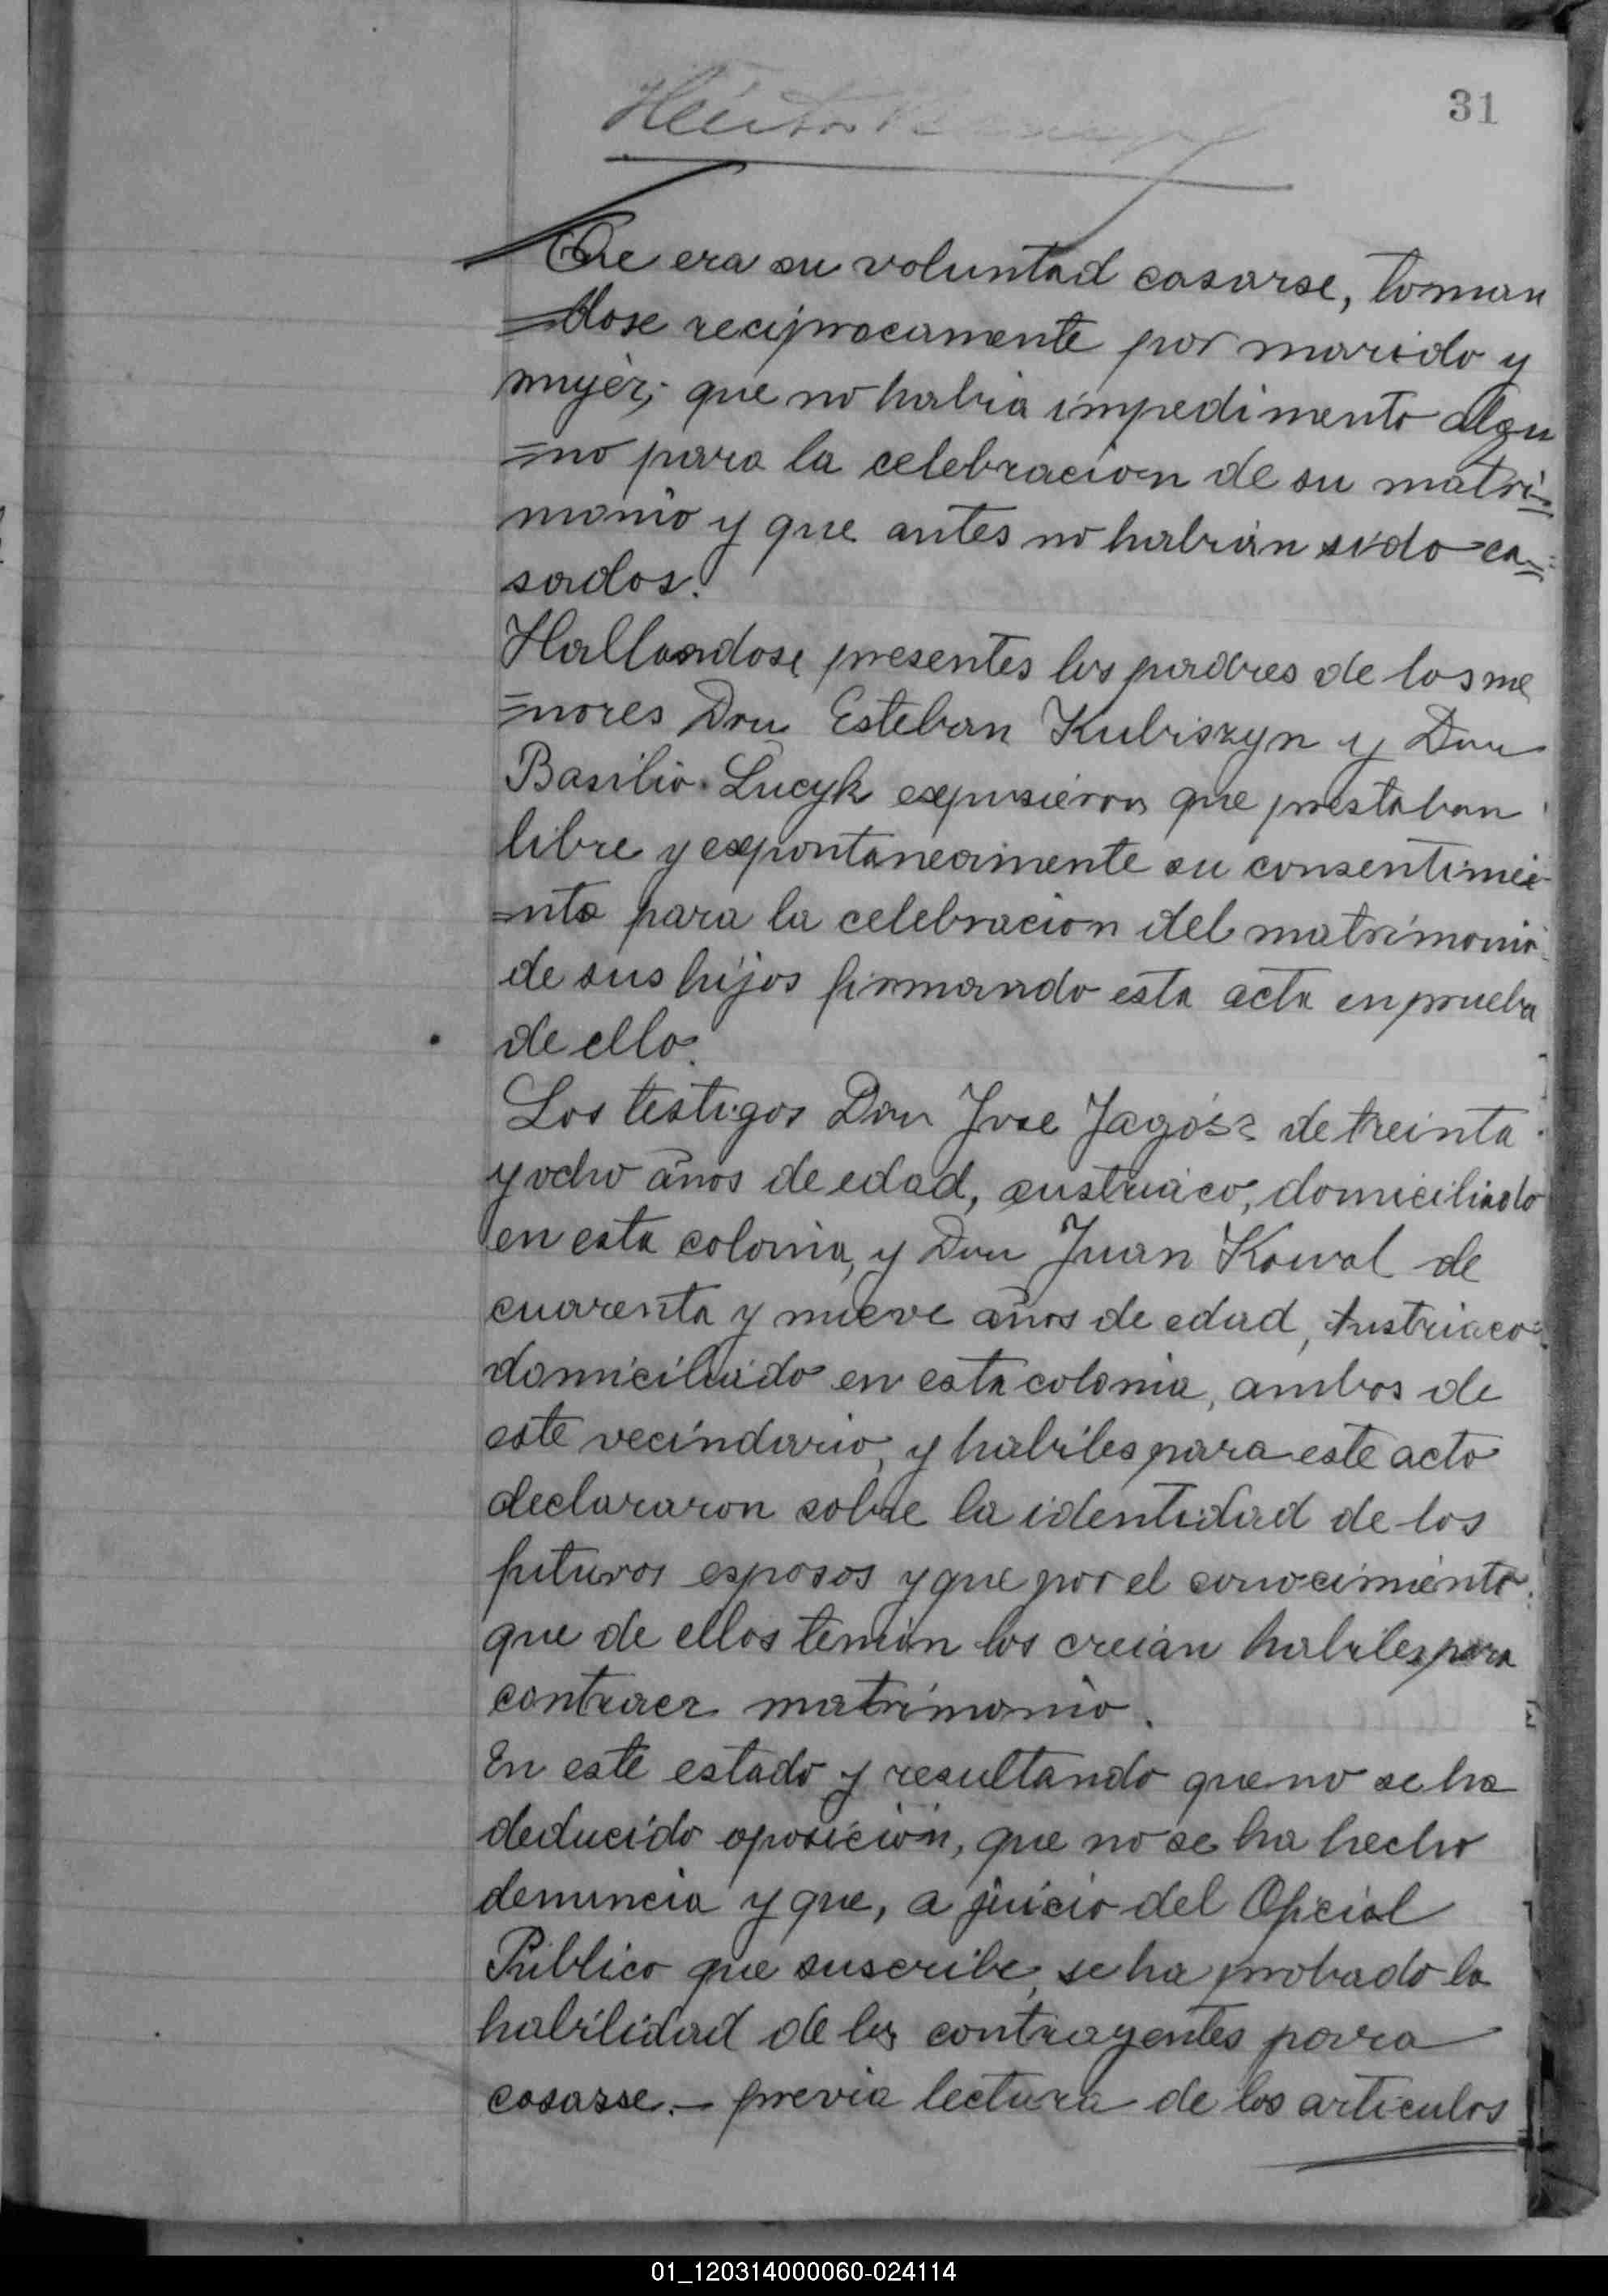 31
Héctor
Que era su voluntad casarse, toman
=dose reciprocamente por marido y
mujer; que no habia impedimento algu
=no para la celebracion de su matri=
monio y que antes no habian sido ca=
sados.
Hallandose presentes los padres de los me
=nores Don Esteban Kubiszyn y Don
Basilio Lucyk expusieron que prestaban
libre y expontaneamente su consentimie
=nto para la celebracion del matrimonio
de sus hijos firmando esta acta en prueba
de ello.
Los testigos Don Jose Jagósz de treinta
y ocho años de edad, austriaco, domiciliado
en esta colonia, y Don Juan Kowal de
cuarenta y nueve años de edad, Austriaco
domiciliado en esta colonia, ambos de
este vecindario, y habiles para este acto
declararon sobre la identidad de los
futuros esposos y que por el conocimiento
que de ellos tenian los creian habiles para
contraer matrimonio.
En este estado y resultando que no se ha
deducido oposición, que no se ha hecho
denuncia y que, a juicio del Oficial
Publico que suscribe, se ha probado la
habilidad de los contrayentes para
casarse.— previa lectura de los articulos
01_120314000060-024114